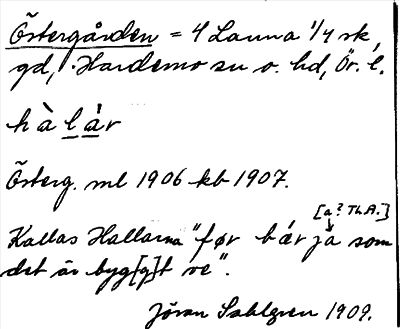 Östergården = 4 Lanna 1/4 sk,
gd, Hardemo sn o. hd, Ör. l.
hàlár
Österg. ml 1906 kb 1907.
[a? Th.A.]
Kallas Hallarna "før bær ja som
det är byg[g]t ve".
Jöran Sahlgren 1909.